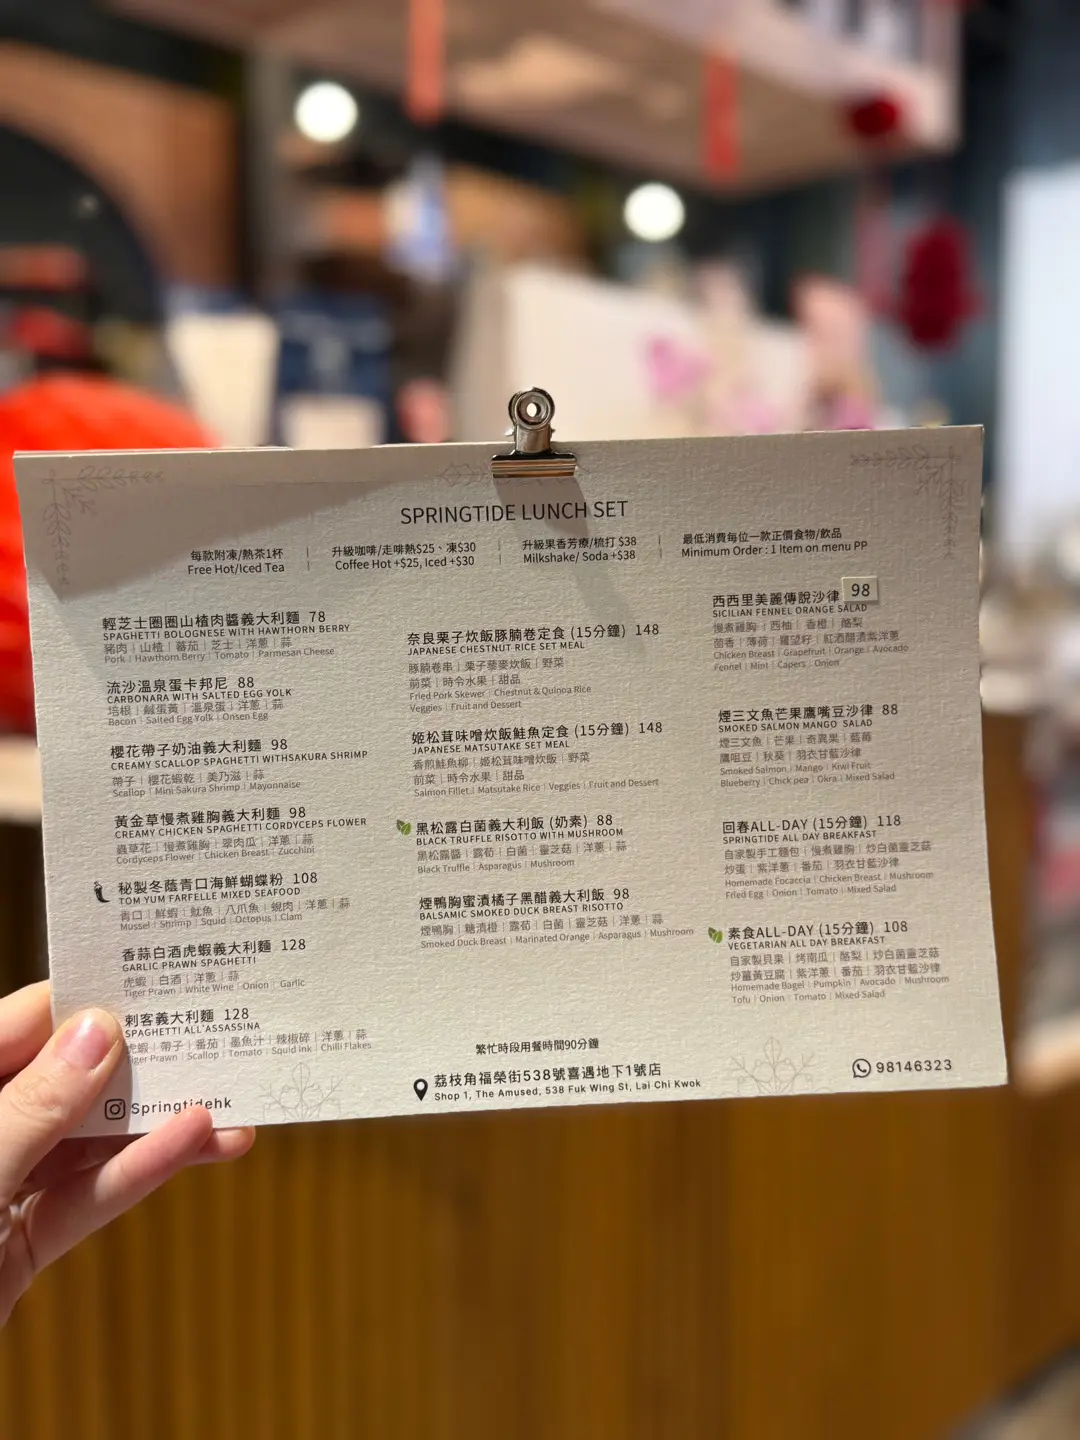 SPRINGTIDE LUNCH SET
每款附凍/熱茶1杯
Free Hot/Iced Tea
升級咖啡/走啡熱$25、凍$30
Coffee Hot +$25, Iced +$30
升級果香芳療/梳打 $38
Milkshake/ Soda +$38
最低消費每位一款正價食物/飲品
Minimum Order : 1 Item on menu PP
輕芝士圈圈山楂肉醬義大利麵 78
SPAGHETTI BOLOGNESE WITH HAWTHORN BERRY
豬肉 | 山楂 | 蕃茄 | 芝士 | 洋蔥 | 蒜
Pork | Hawthorn Berry | Tomato | Parmesan Cheese
流沙溫泉蛋卡邦尼 88
CARBONARA WITH SALTED EGG YOLK
培根 | 鹹蛋黃 | 溫泉蛋 | 洋蔥 | 蒜
Bacon | Salted Egg Yolk | Onsen Egg
櫻花帶子奶油義大利麵 98
CREAMY SCALLOP SPAGHETTI WITHSAKURA SHRIMP
帶子 | 櫻花蝦乾 | 美乃滋 | 蒜
Scallop | Mini Sakura Shrimp | Mayonnaise
黃金草慢煮雞胸義大利麵 98
CREAMY CHICKEN SPAGHETTI CORDYCEPS FLOWER
蟲草花 | 慢煮雞胸 | 翠肉瓜 | 洋蔥 | 蒜
Cordyceps Flower | Chicken Breast | Zucchini
秘製冬蔭青口海鮮蝴蝶粉 108
TOM YUM FARFELLE MIXED SEAFOOD
青口 | 鮮蝦 | 魷魚 | 八爪魚 | 蜆肉 | 洋蔥 | 蒜
Mussel | Shrimp | Squid | Octopus | Clam
香蒜白酒虎蝦義大利麵 128
GARLIC PRAWN SPAGHETTI
虎蝦 | 白酒 | 洋蔥 | 蒜
Tiger Prawn | White Wine | Onion | Garlic
刺客義大利麵 128
SPAGHETTI ALL'ASSASSINA
虎蝦 | 帶子 | 番茄 | 墨魚汁 | 辣椒碎 | 洋蔥 | 蒜
Tiger Prawn | Scallop | Tomato | Squid ink | Chilli Flakes
奈良栗子炊飯豚腩卷定食 (15分鐘) 148
JAPANESE CHESTNUT RICE SET MEAL
豚腩卷串 | 栗子藜麥炊飯 | 野菜
前菜 | 時令水果 | 甜品
Fried Pork Skewer | Chestnut & Quinoa Rice
Veggies | Fruit and Dessert
姬松茸味噌炊飯鮭魚定食 (15分鐘) 148
JAPANESE MATSUTAKE SET MEAL
香煎鮭魚柳 | 姬松茸味噌炊飯 | 野菜
前菜 | 時令水果 | 甜品
Salmon Fillet | Matsutake Rice | Veggies | Fruit and Dessert
黑松露白菌義大利飯 (奶素) 88
BLACK TRUFFLE RISOTTO WITH MUSHROOM
黑松露醬 | 露荀 | 白菌 | 靈芝菇 | 洋蔥 | 蒜
Black Truffle | Asparagus | Mushroom
煙鴨胸蜜漬橘子黑醋義大利飯 98
BALSAMIC SMOKED DUCK BREAST RISOTTO
煙鴨胸 | 糖漬橙 | 露荀 | 白菌 | 靈芝菇 | 洋蔥 | 蒜
Smoked Duck Breast | Marinated Orange | Asparagus | Mushroom
西西里美麗傳說沙律 98
SICILIAN FENNEL ORANGE SALAD
慢煮雞胸 | 西柚 | 香橙 | 酪梨
茴香 | 薄荷 | 羅望籽 | 紅酒醋漬紫洋蔥
Chicken Breast | Grapefruit | Orange | Avocado
Fennel | Mint | Capers | Onion
煙三文魚芒果鷹嘴豆沙律 88
SMOKED SALMON MANGO SALAD
煙三文魚 | 芒果 | 奇異果 | 藍莓
鷹咀豆 | 秋葵 | 羽衣甘藍沙律
Smoked Salmon | Mango | Kiwi Fruit
Blueberry | Chick pea | Okra | Mixed Salad
回春ALL-DAY (15分鐘) 118
SPRINGTIDE ALL DAY BREAKFAST
自家製手工麵包 | 慢煮雞胸 | 炒白菌靈芝菇
炒蛋 | 紫洋蔥 | 番茄 | 羽衣甘藍沙律
Homemade Focaccia | Chicken Breast | Mushroom
Fried Egg | Onion | Tomato | Mixed Salad
素食ALL-DAY (15分鐘) 108
VEGETARIAN ALL DAY BREAKFAST
自家製貝果 | 烤南瓜 | 酪梨 | 炒白菌靈芝菇
炒薑黃豆腐 | 紫洋蔥 | 番茄 | 羽衣甘藍沙律
Homemade Bagel | Pumpkin | Avocado | Mushroom
Tofu | Onion | Tomato | Mixed Salad
繁忙時段用餐時間90分鐘
Springtidehk
荔枝角福榮街538號喜遇地下1號店
Shop 1, The Amused, 538 Fuk Wing St, Lai Chi Kwok
98146323